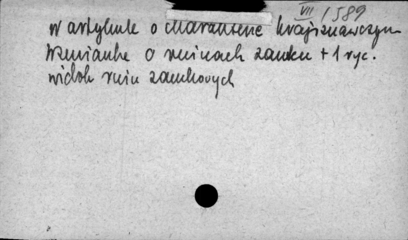 VII/1589
w artykule o charakterze krajoznawczym
wzmianka o ruinach zamku + 1 ryc.
widok ruin zamkowych